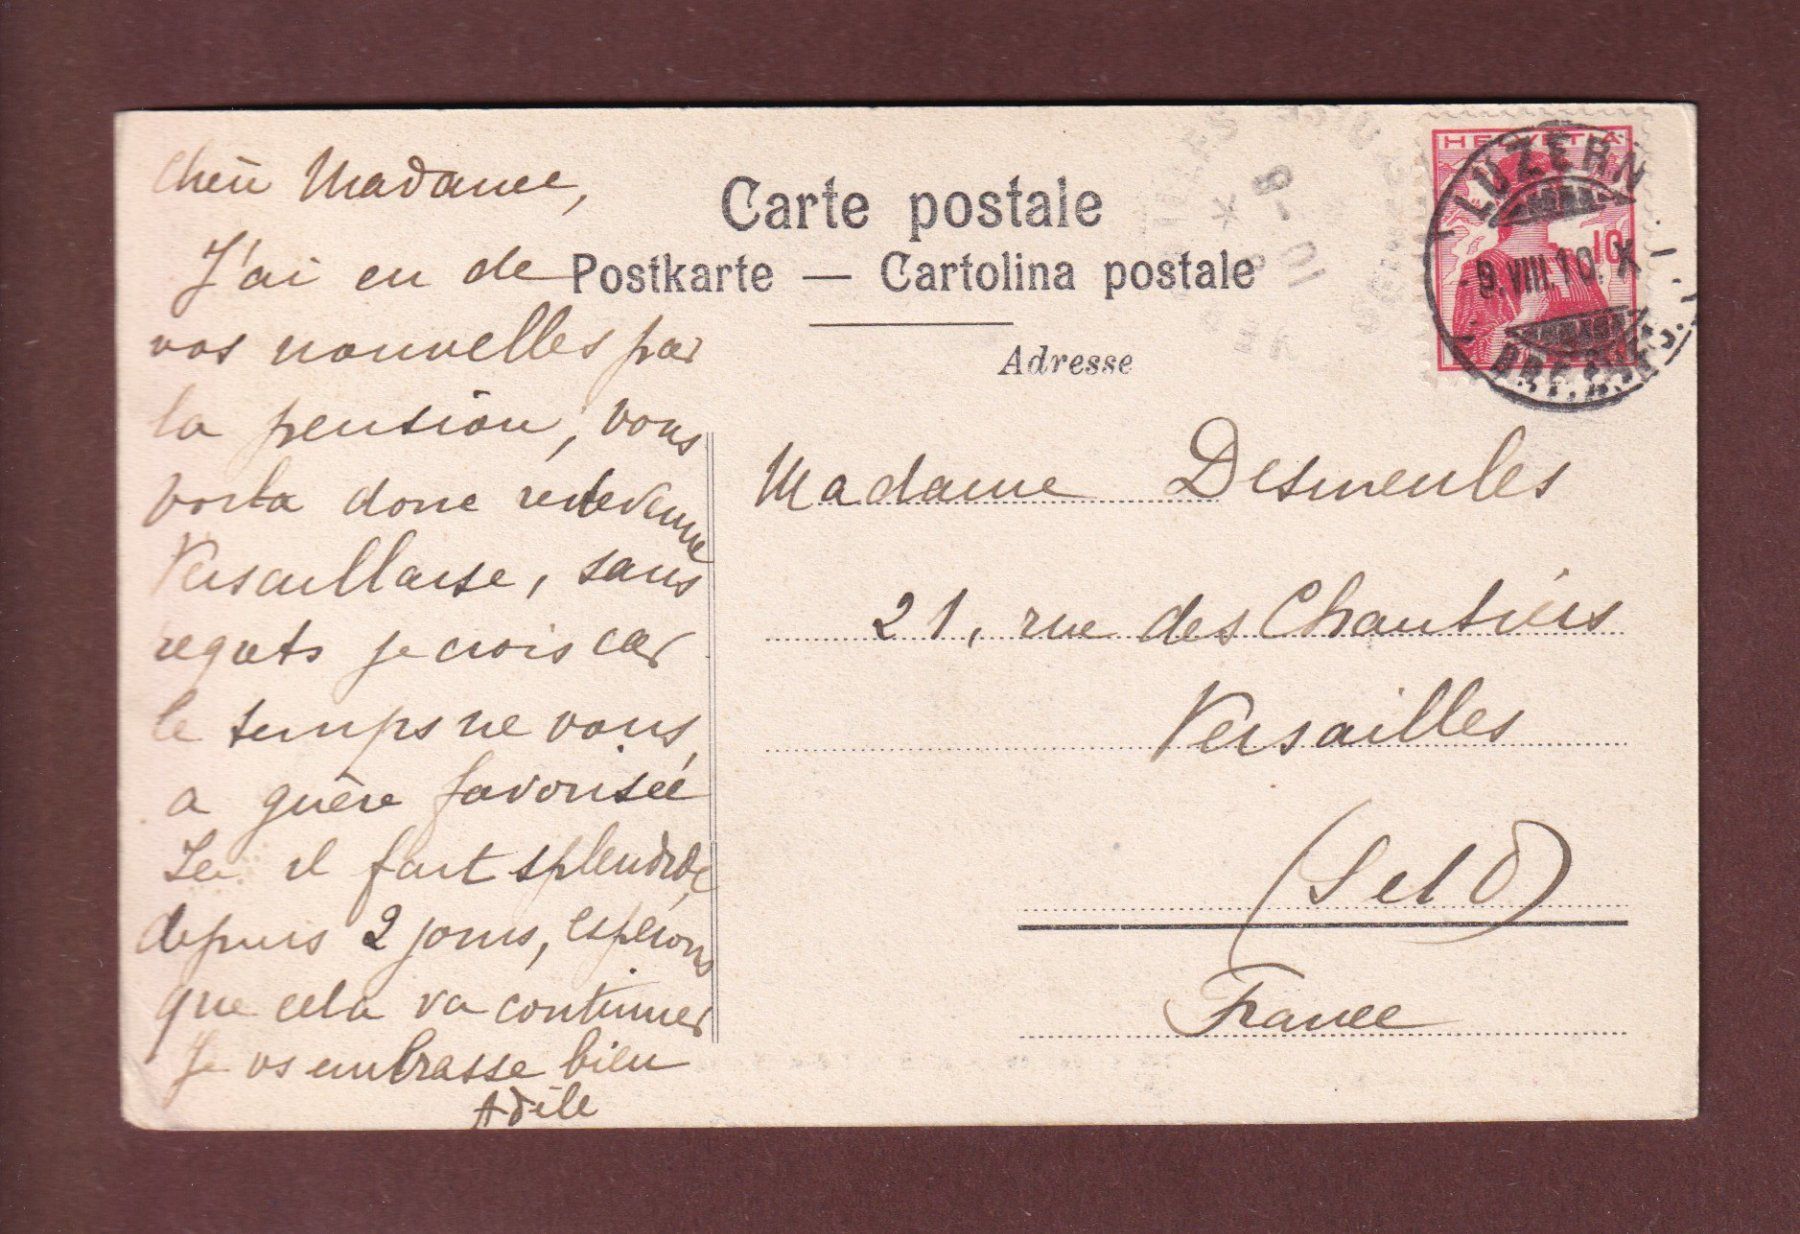 Chère Madame,
J'ai eu de
vos nouvelles par
la pension, vous
voila donc redevenue
Versaillaise, sans
regrets je crois car
le temps ne vous
a guère favorisée
Ici il fait splendide
depuis 2 jours, espérons
que cela va continuer
Je vs embrasse bien
Adèle
Carte postale
Postkarte — Cartolina postale
Adresse
HELVETIA
10
LUZERN
9.VIII.10.X
Madame Desmeules
21, rue des Chantiers
Versailles
(S et O)
France